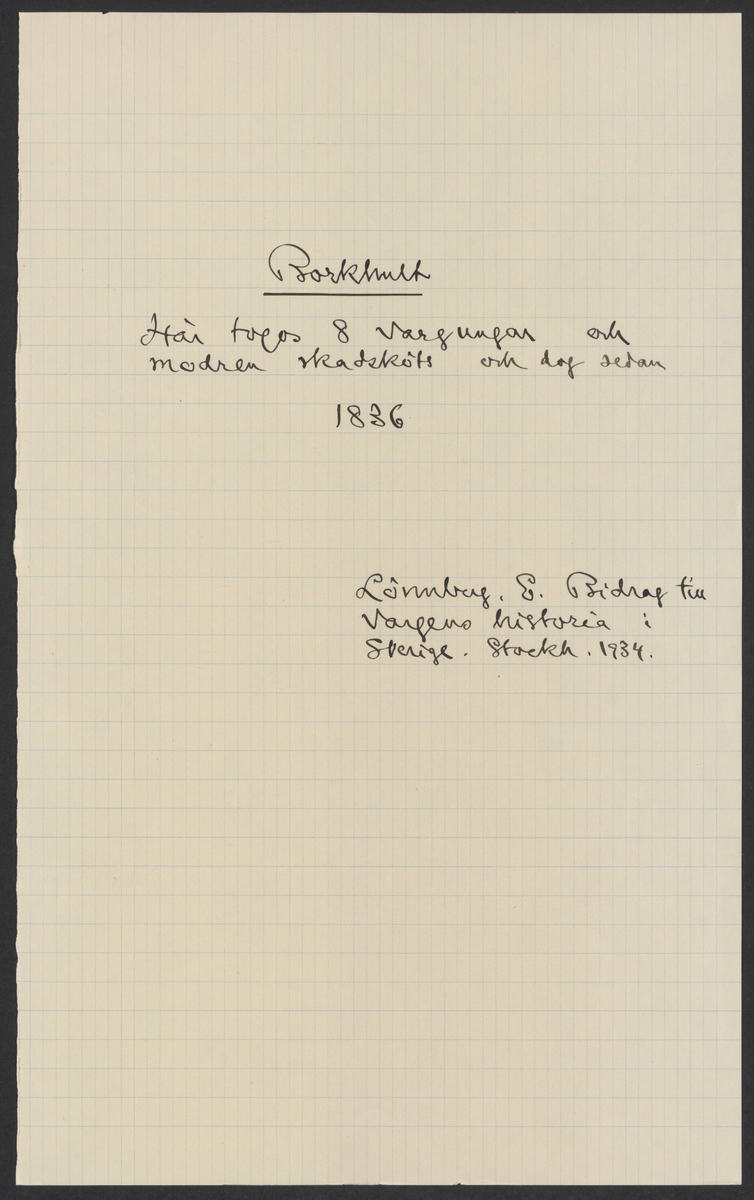 Borkhult
Här togos 8 vargungar och
modren skadsköts och dog sedan
1836
Lönnberg, E. Bidrag till
Vargens historia i
Sverige. Stockh. 1934.